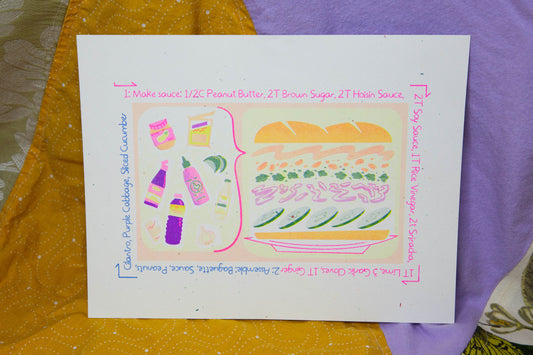 1: Make sauce: 1/2C Peanut Butter, 2T Brown Sugar, 2T Hoisin Sauce,
2T Soy Sauce, 1T Rice Vinegar, 2t Sriracha,
1T Lime, 3 Garlic Cloves, 1T Ginger 2: Assemble: Baguette, Sauce, Peanuts,
Cilantro, Purple Cabbage, Sliced Cucumber